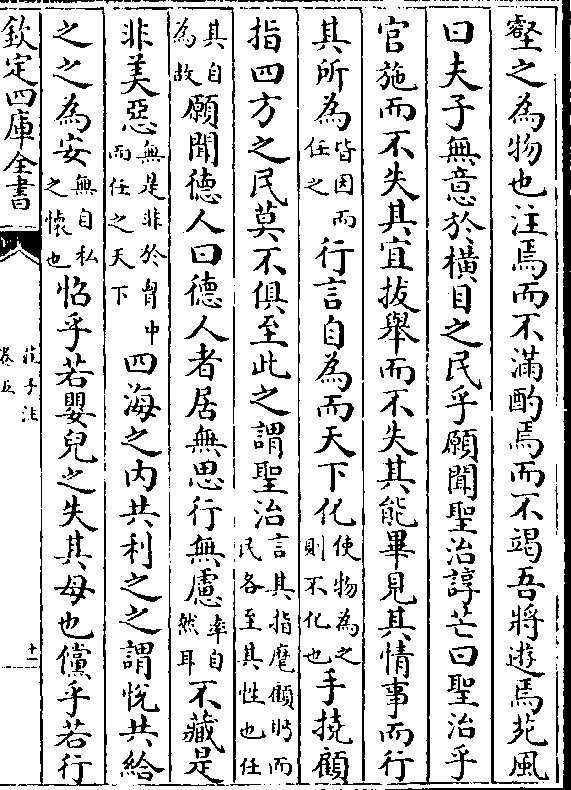 壑之為物也注焉而不滿酌焉而不竭吾將遊焉苑風
曰夫子無意於橫目之民乎願聞聖治諄芒曰聖治乎
官施而不失其宜拔舉而不失其能畢見其情事而行
其所為皆因而任之行言自為而天下化使物為之則不化也手撓顧
指四方之民莫不俱至此之謂聖治言其指麾顧眄而民各至其性也任
其自為故願聞德人曰德人者居無思行無慮率自然耳不藏是
非美惡無是非於胷中而任之天下四海之內共利之之謂悅共給
之之為安無自私之懷也怊乎若嬰兒之失其母也儻乎若行
欽定四庫全書
莊子注
卷五
十二